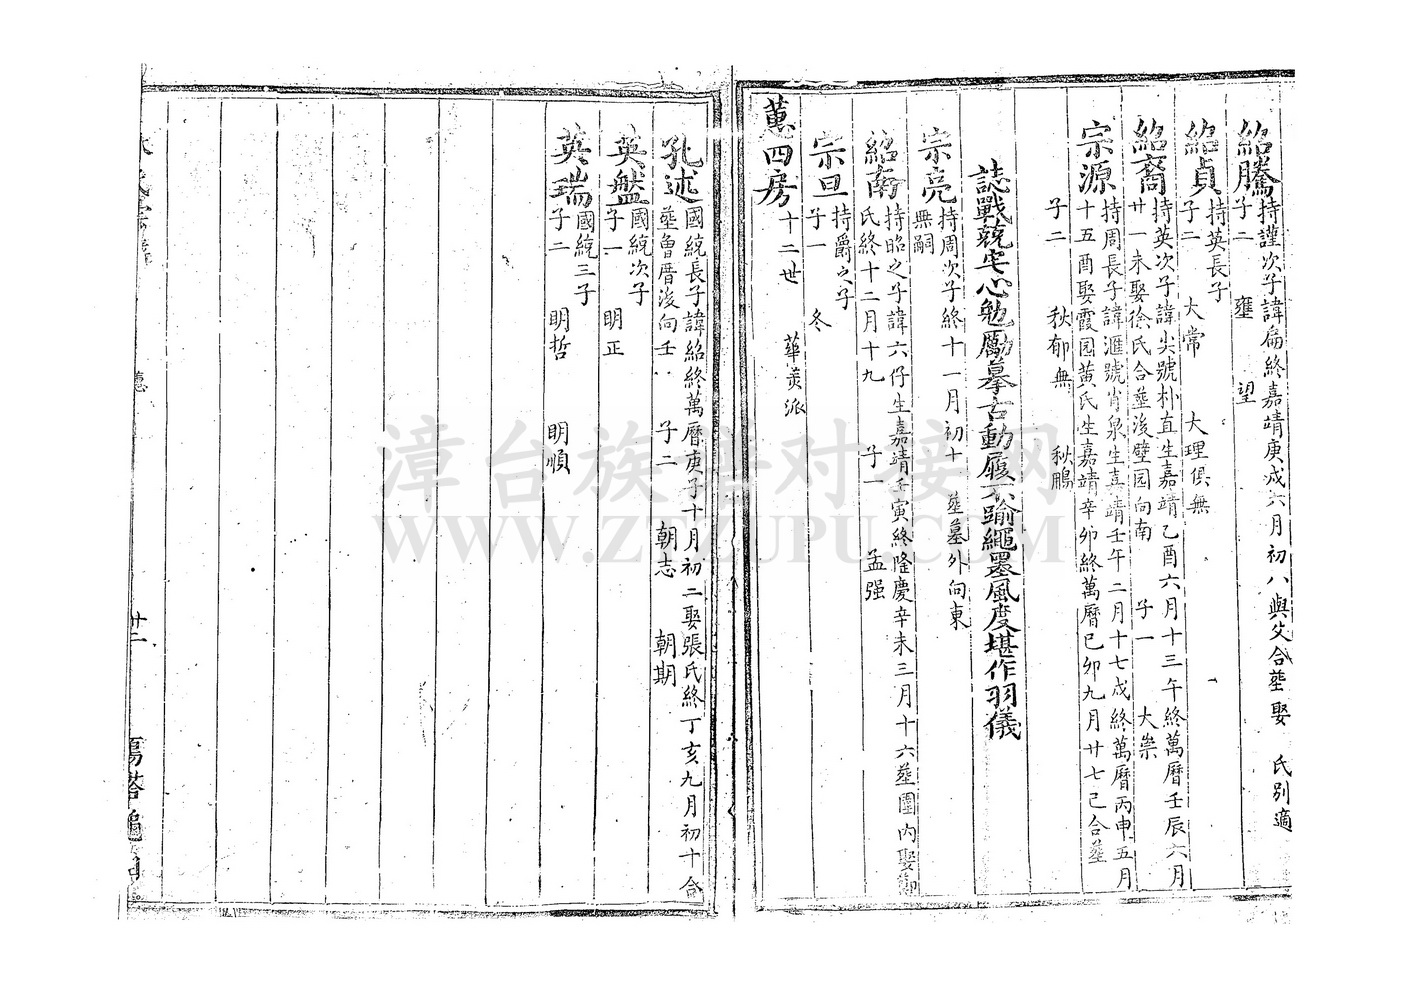 紹騰
持謹次子諱扁終嘉靖庚戌六月初八與父合塟娶 氏別適
子二 壅 望
紹貞
持英長子
子二 大常 大理俱無
紹裔
持英次子諱尖號朴直生嘉靖乙酉六月十三午終萬曆壬辰六月
廿一未娶徐氏合塟後壁园向南 子一 大崇
宗源
持周長子諱滙號肖泉生嘉靖壬午二月十七戌終萬曆丙申五月
十五酉娶霞园黃氏生嘉靖辛卯終萬曆己卯九月廿七己合塟
子二 秋郁無 秋鵬
誌戰兢宅心勉勵摹古動履不踰繩墨風度堪作羽儀
宗亮
持周次子終十一月初十 塟墓外向東
無嗣
紹南
持昭之子諱六仔生嘉靖壬寅終隆慶辛未三月十六塟園內娶
氏終十二月十九 子一 孟强
宗旦
持爵之子
子一 冬
蕙四房
十二世 華美派
孔述
國統長子諱紹終萬曆庚子十月初二娶張氏終丁亥九月初十合
塟魯厝後向壬 子二 朝志 朝期
英盤
國統次子
子一 明正
英瑞
國統三子
子二 明哲 明順
廿二
漳台族谱对接网
WWW.ZTZUPU.COM